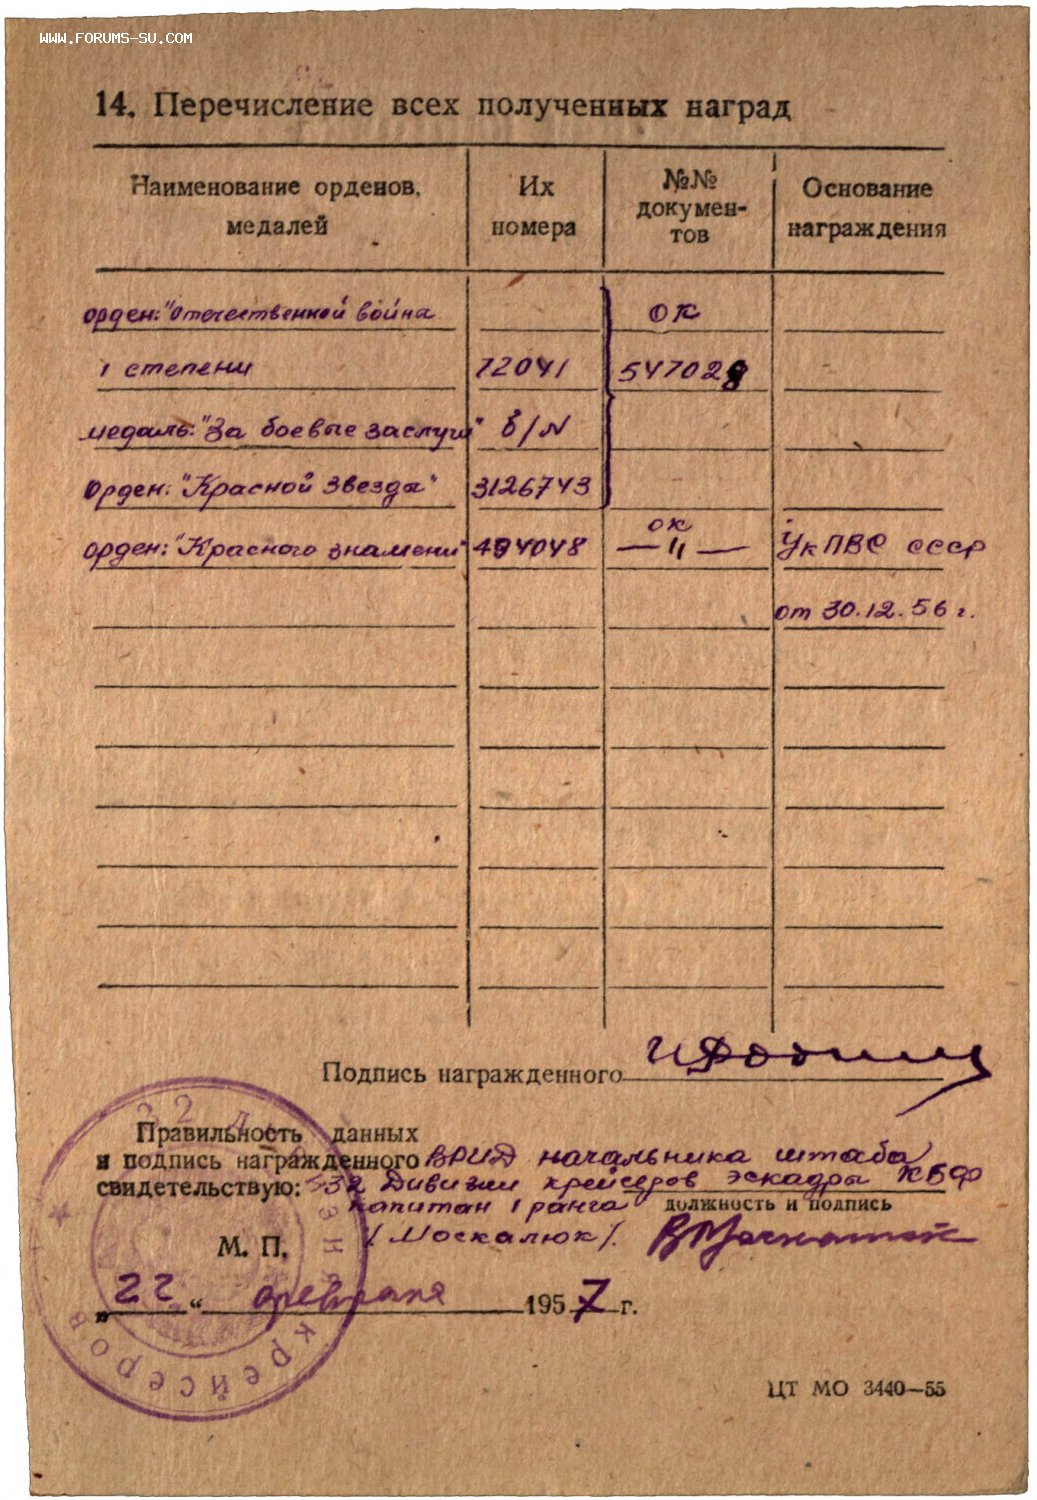 WWW.FORUMS-SU.COM
14. Перечисление всех полученных наград
Наименование орденов, медалей
Их номера
№№ докумен-тов
Основание награждения
орден: "Отечественной война
ОК
1 степени 72041 547028
медаль: "За боевые заслуги" б/N
орден: "Красной Звезда" 3126743
ок
орден: "Красного знамени" 494048 —〃— Ук ПВС СССР
от 30.12.56 г.
Подпись награжденного
Правильность данных
и подпись награжденного ВРИД начальника штаба
свидетельствую: 32 Дивизии крейсеров эскадры КБФ
капитан 1 ранга должность и подпись
М. П. /Москалюк/.
„22“ февраля 1957 г.
32 дивизия крейсеров
ЦТ МО 3440—55